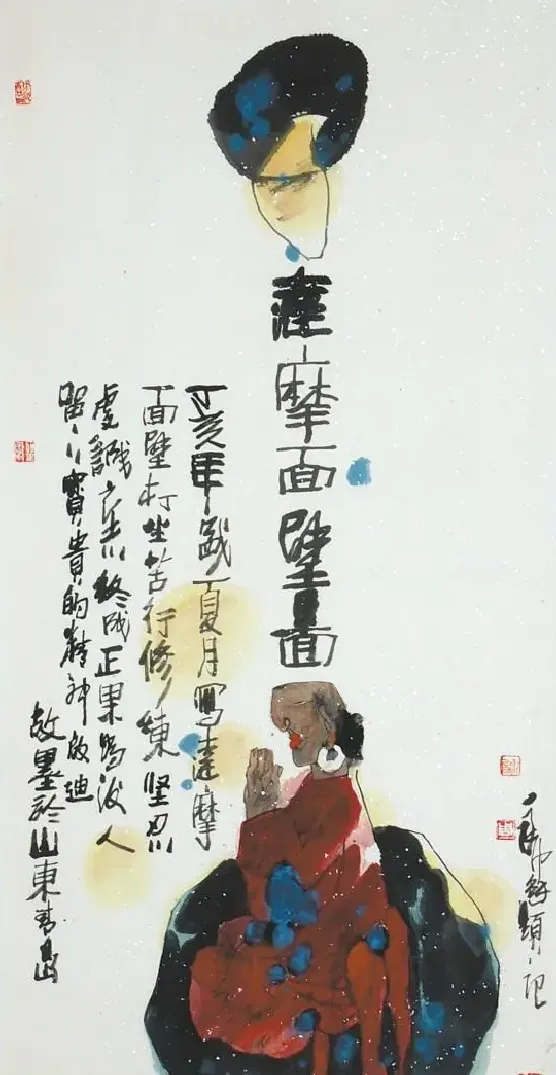 達摩面壁圖
丁亥年歲夏月寫達摩
面壁打坐苦行修練堅忍
虔誠之心終成正果為後人
留下寶貴的精神啟迪
故墨於山東青島
記